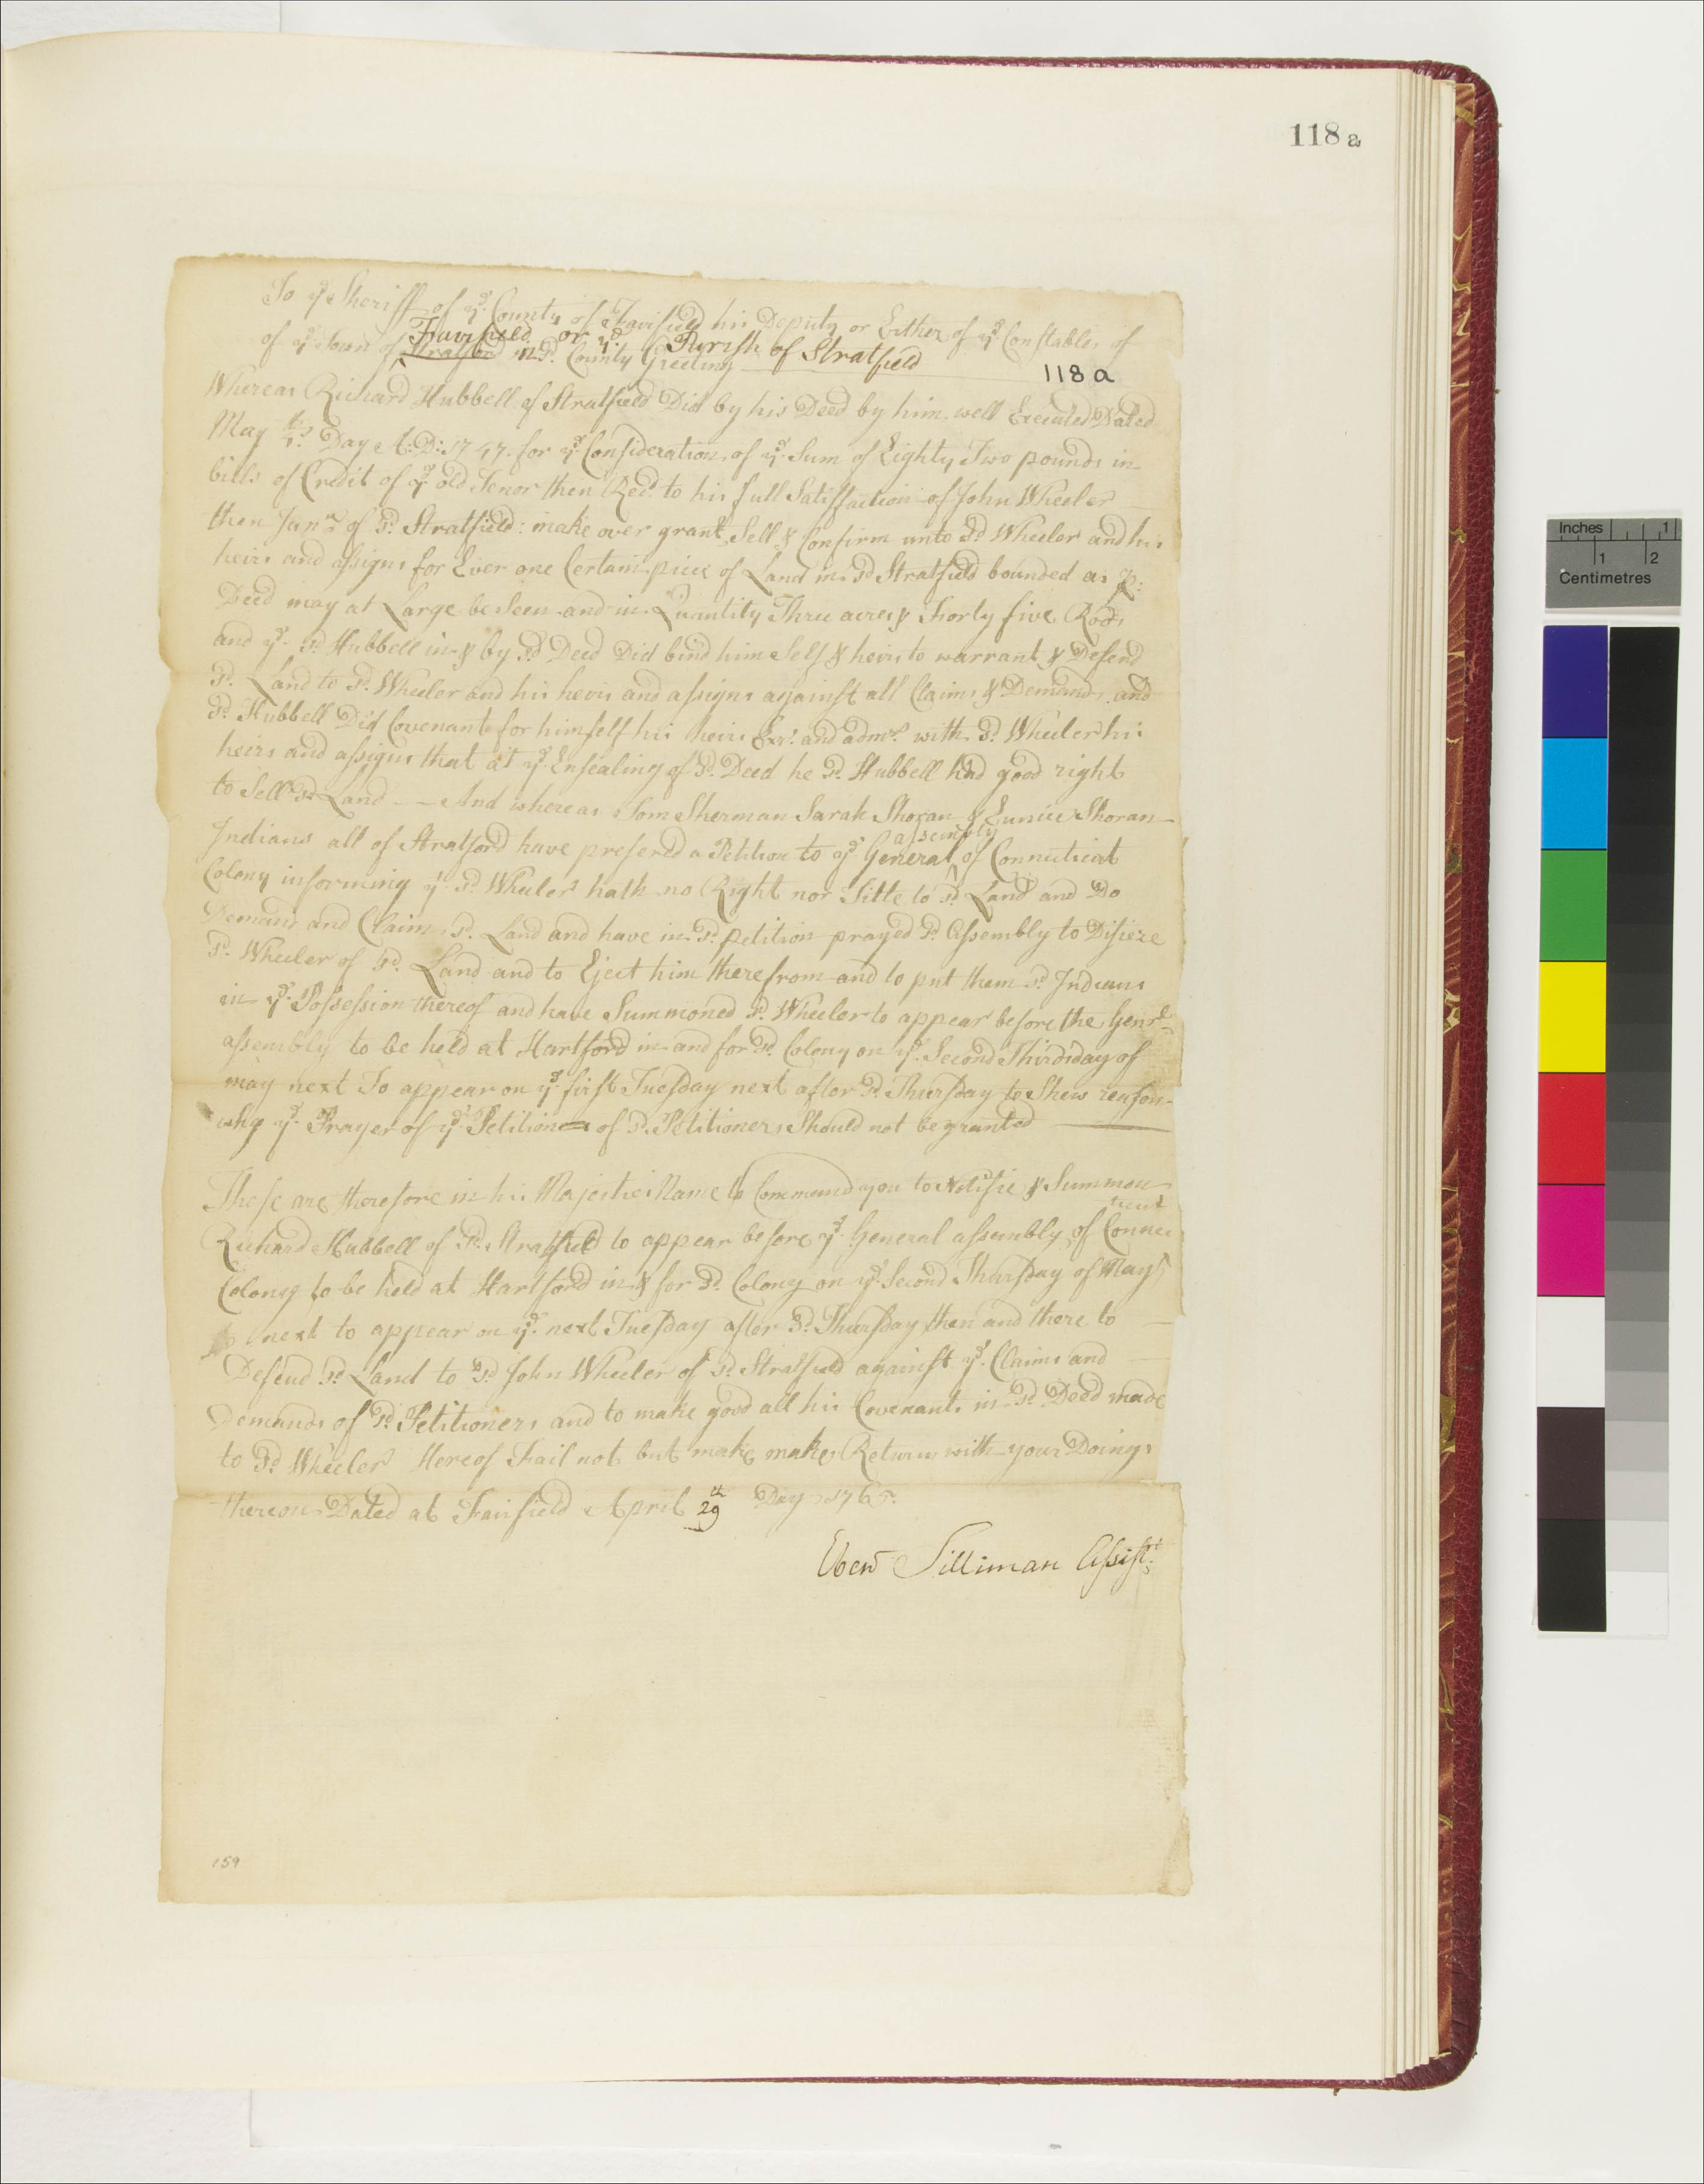 118 a
To yᵉ Sheriff of yᵉ County of Fairfield his Deputy or Either of yᵉ Constables of
of yᵉ Town of Fairfield or yᵉ Parish of Stratfield
Stratford in sᵈ. County Greeting
118 a
Whereas Richard Hubbell of Stratfield Did by his Deed by him well Executed Dated
May Day A:D: 1747. for yᵉ Consideration of yᵉ Sum of Eighty Two pounds in
bills of Credit of yᵉ old Tenor then Recᵈ to his full Satisfaction of John Wheeler
then Junʳ of sᵈ. Stratfield: make over grant Sell & Confirm unto sᵈ Wheeler and his
heirs and assigns for Ever one Certain piece of Land in sᵈ Stratfield bounded as pʳ:
Deed may at Large be Seen and in Quantity Three acres & Forty five Rods
and yᵉ sᵈ Hubbell in & by sᵈ Deed Did bind him Self & heirs to warrant & Defend
sᵈ. Land to sᵈ. Wheeler and his heirs and assigns against all Claims & Demands and
sᵈ Hubbell Did Covenant for himself his heirs Exʳˢ. and admʳˢ. with sᵈ. Wheeler his
heirs and assigns that at yᵉ Ensealing of sᵈ. Deed he sᵈ. Hubbell had good right
to Sell sᵈ Land — And whereas Tom Sherman Sarah Shoran & Eunice Shoran
Indians all of Stratford have prefered a Petition to yᵉ General assembly of Connecticut
Colony informing yᵉ sᵈ. Wheeler hath no Right nor Title to sᵈ. Land and Do
Demand and Claim sᵈ. Land and have in sᵈ. petition prayed sᵈ. Assembly to Disieze
sᵈ. Wheeler of sᵈ. Land and to Eject him therefrom and to put them sᵈ. Indians
in yᵉ Possession thereof and have Summoned sᵈ. Wheeler to appear before the Genʳˡ
assembly to be held at Hartford in and for sᵈ. Colony on yᵉ. Second Thirdsday of
may next To appear on yᵉ first Tuesday next after sᵈ. Thursday to Shew reason
why yᵉ Prayer of yᵉ Petition of sᵈ. Petitioners Should not be granted
These are therefore in his Majesties Name to Command you to Notifie & Summon
Richard Hubbell of sᵈ. Stratfield to appear before yᵉ General assembly of Connecticut
Colony to be held at Hartford in & for sᵈ. Colony on yᵉ Second Thursday of May
next to appear on yᵉ. next Tuesday after sᵈ. Thursday then and there to
Defend sᵈ Land to sᵈ John Wheeler of sᵈ. Stratfield against yᵉ. Claims and
Demands of sᵈ. Petitioners and to make good all his Covenants in sᵈ Deed made
to sᵈ Wheeler Hereof Fail not but make make Return with your Doings
thereon Dated at Fairfield April 29ᵗʰ Day 1765.
Ebenʳ Silliman Assistᵗ:
159
Inches 1
1 2
Centimetres